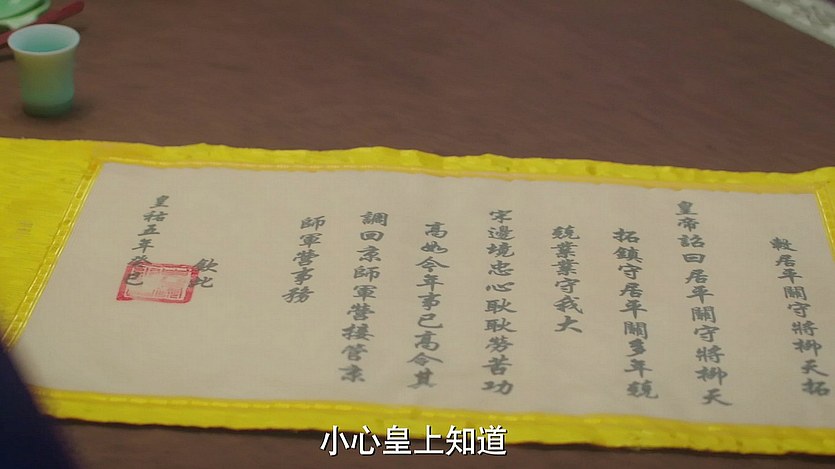 敕居平關守將柳天拓
皇帝詔曰居平關守將柳天
拓鎮守居平關多年兢
兢業業守我大
宋邊境忠心耿耿勞苦功
高如今年事已高令其
調回京師軍營接管京
師軍營事務
欽此
皇祐五年癸巳
小心皇上知道